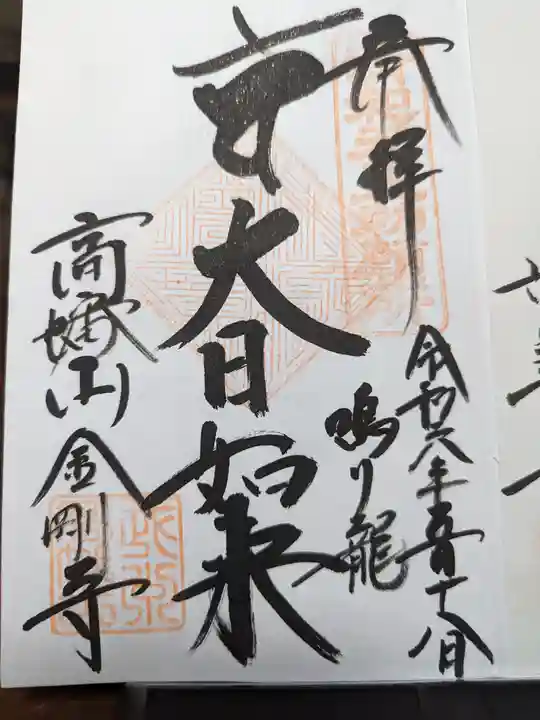 奉拝
令和六年五月十八日
鳴り龍
大日如来
高幡山金剛寺